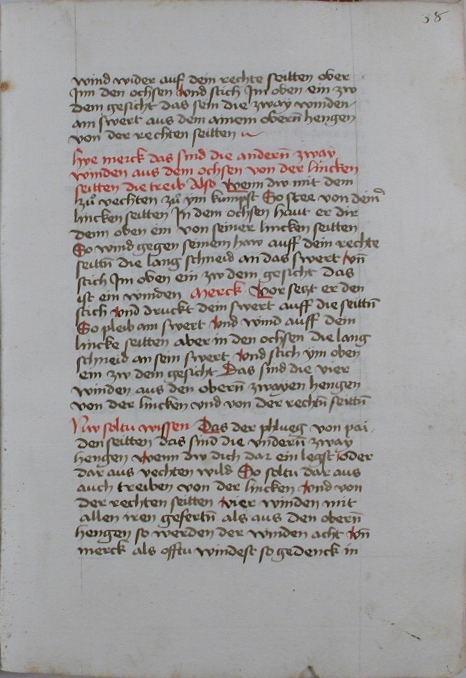 38
wind wider auf dein rechte seitten ober
Im den ochsen vnd stich Im oben ein zw
dem gesicht das sein die zway winden
am swert aus dem ainem obern̄ hengen
von der rechten seitten
Hye merck das sind die andern̄ zway
winden aus dem ochsen von der lincken
seitten die treib Also Wenn dw mit dem
zů vechten zů ym kumpst So stee von deiner
lincken seitten In dem ochsen haut er dir
denn oben ein von seiner lincken seitten
So wind gegen seinem haw auff dein rechte
seittn̄ die lang schneid an das swert vn̄
stich Im oben ein zw dem gesicht das
ist ein winden Merck Vor setzt er den
stich vnd druckt dein swert auff die seittn̄
So pleib am swert vnd wind auff dein
lincke seitten aber in den ochsen die lang
schneid an sein swert vnd stich ym oben
ein zw dem gesicht Das sind die vier
winden aus den obern̄ zwayen hengen
von der lincken vnd von der rechtn̄ seittn̄
Nw soltu wissen Das der phlueg von pai
den seitten das sind die vndern̄ zway
hengen Wenn dw dich dar ein legst oder
dar aus vechten wild So soltu dar aus
auch treiben von der lincken vnd von
der rechten seitten vier winden mit
allen iren gefertn̄ als aus den obern̄
hengen so werden der winden acht vn̄
merck als offtu windest so gedenck in